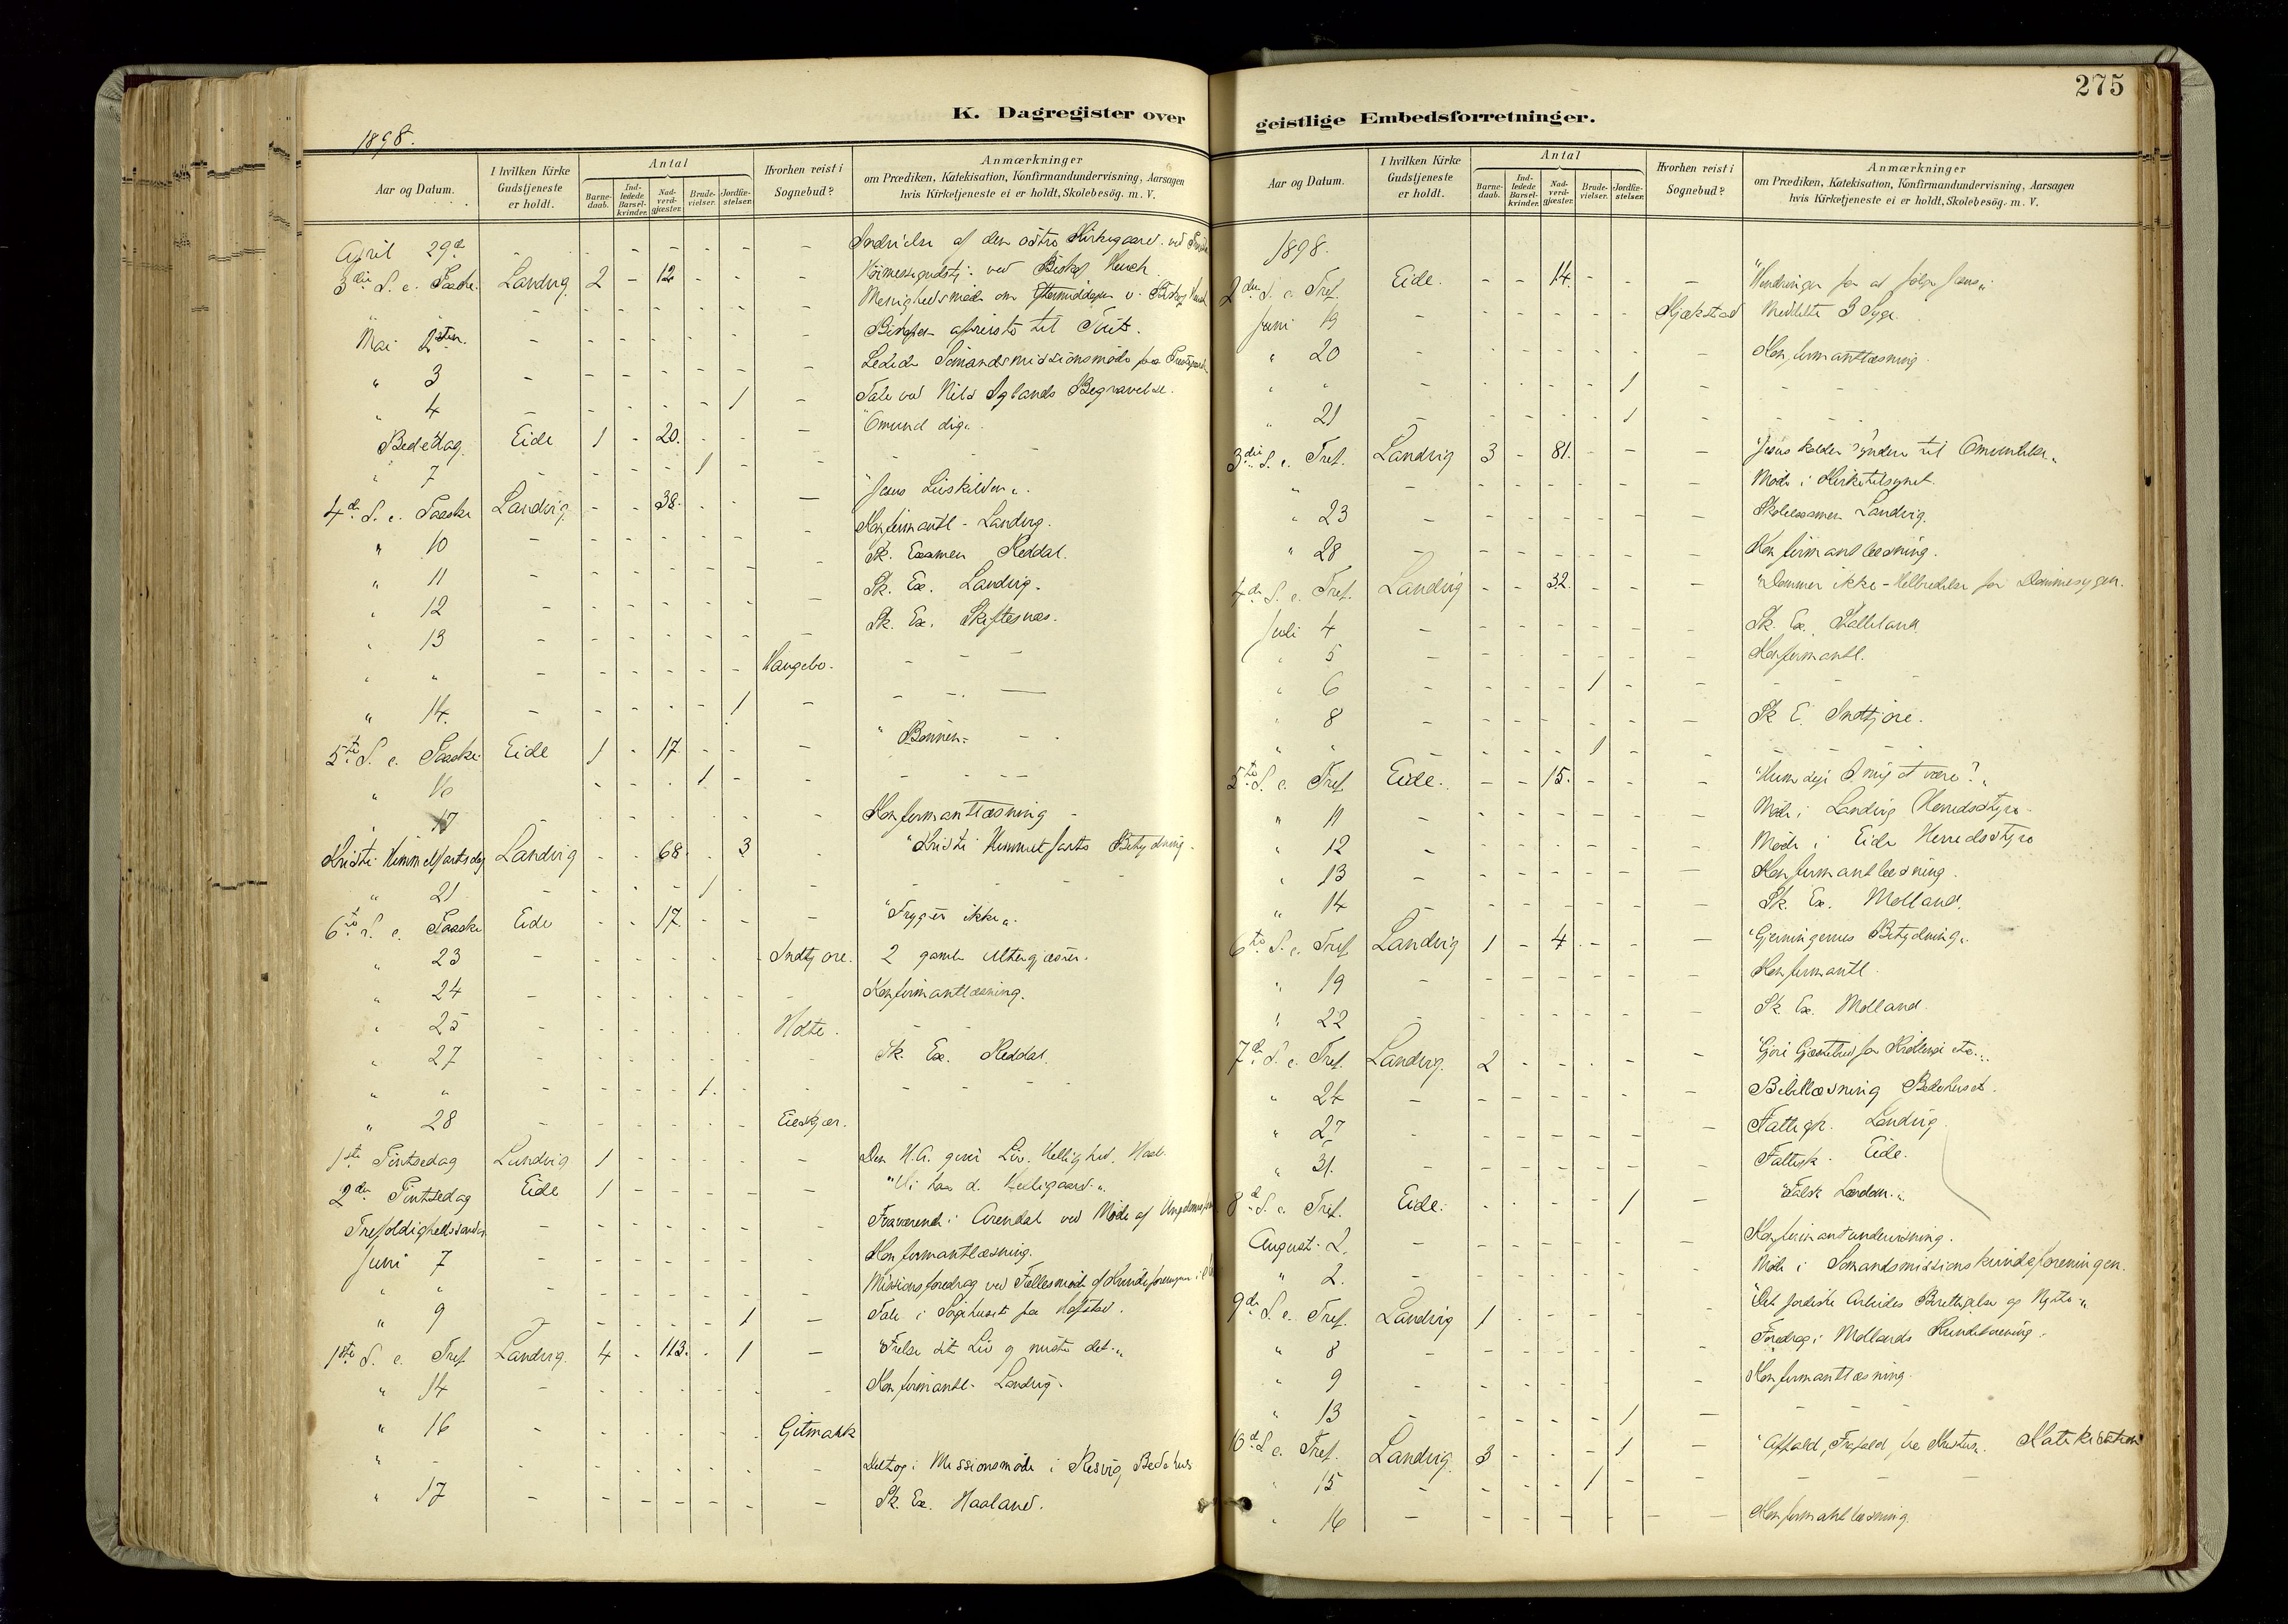 275
K. Dagregister over
geistlige Embedsforretninger.
1898.
Aar og Datum.
I hvilken Kirke Gudstjeneste er holdt.
Antal
Barne-daab.
Ind-ledede Barsel-kvinder.
Nad-verd-gjæster.
Brude-vielser.
Jordfæ-stelser.
Hvorhen reist i Sognebud?
Anmærkninger
om Prædiken, Katekisation, Konfirmandundervisning, Aarsagen
hvis Kirketjeneste ei er holdt, Skolebesög. m. V.
April 29de - - - - - - - Indvielse af den østre Kirkegaard. ved
3die S. e. Paaske. Landvig. 2 - 12 - - - ved Biskop Heuch
" - - - - - - - Menighedsmøde om Eftermiddagen v. Biskop
Mai - - - - - - - Bispen afreiste til
" 3 - - - - - - - Sømandsmissionsmøde paa
" 4 - - - - - 1 - Tale ved Nils Aglands Begravelse.
Bededag. Eide 1 - 20. - - - "Omvend dig"
" 7 - - - - 1 - - -
4de S. e. Paaske Landvig. - - 38. - - - "Jesus
" 10 - - - - - - - Konfirmantl - Landvig.
" 11 - - - - - - - Sk. Examen Reddal.
" 12 - - - - - - - Sk. Ex. Landvig.
" 13 - - - - - - - Sk. Ex. Skiftesnæs.
" " - - - - - - Haugebo. - - -
" 14. - - - - - 1 - - - -
5te S. e. Paaske. Eide 1 - 17 - - - "Bønnen" - -
" 16 - - - - 1 - - - -
" 17 - - - - - - - Konfirmantlæsning -
Kristi Himmelfartsdag Landvig - - 68 - 3 - "Kristi Himmelfarts Betydning.
" 21 - - - - 1 - - - -
6te S. e. Paaske Eide - - 17. - - - "Frygter ikke".
" 23 - - - - - - Indtjore. 2 gamle Altergjæster.
" 24 - - - - - - - Konfirmantlæsning.
" 25 - - - - - - Holte. - -
" 27 - - - - - - - Sk. Ex. Reddal.
" " - - - - 1. - - - -
" 28 - - - - - - Eieskjær.
1ste Pintsedag Landvig 1 - - - - - Den H.A. giver Liv. Hellighed. Haab.
2den Pintsedag Eide 1 - - - - -
- - - - - - - Fraværende i Arendal ved Møde af
Juni 7 - - - - - - - Konfirmantlæsning.
" " - - - - - - - Missionsforedrag ved Fællesmøde af Kvindeforeninger i
" 9 - - - - - 1 - Tale i Sørgehuset paa
1ste S. e. Tref. Landvig. 4 - 113. - 1 - "Frelse sit Liv og miste det".
" 14 - - - - - - - Konfirmantl. Landvig.
" 16 - - - - - - Gitmark
" - - - - - - - Deltog i Missionsmøde i Resvig Bedehus
" 17 - - - - - - - Sk. Ex. Haaland.
Aar og Datum.
I hvilken Kirke Gudstjeneste er holdt.
Antal
Barne-daab.
Ind-ledede Barsel-kvinder.
Nad-verd-gjæster.
Brude-vielser.
Jordfæ-stelser.
Hvorhen reist i Sognebud?
Anmærkninger
om Prædiken, Katekisation, Konfirmandundervisning, Aarsagen
hvis Kirketjeneste ei er holdt, Skolebesög. m. V.
1898.
2den S. e. Tref. Eide. - - 14. - - - "Hindringer for at følge Jesus".
Juni 19 - - - - - - Meddelte 3 Syge.
" 20 - - - - - - - Konfirmantlæsning
" " - - - - - 1 - - - -
" 21 - - - - - 1 - - - -
3die S. e. Tref. Landvig 3 - 81. - - - "Jesus kalder Syndere til Omvendelse"
" - - - - - - - Møde i Kirketilsynet.
" 23 - - - - - - - Skoleexamen Landvig.
" 28 - - - - - - - Konfirmantlæsning.
4de S. e. Tref. Landvig - - 32. - - - "Dømmer ikke - Helbredelse for Dømmesygen.
Juli 4 - - - - - - - Sk. Ex.
" 5 - - - - - - - Konfirmantl.
" 6 - - - - 1 - - - -
" 8 - - - - - - - Sk E. Indtjore.
" " - - - - 1 - - - -
5te S. e. Tref Eide. - - 15. - - -
" 11 - - - - - - - Møde i Landvig Herredsstyre.
" 12 - - - - - - - Møde i Eide Herredsstyre
" 13 - - - - - - - Konfirmantlæsning.
" 14 - - - - - - - Sk. Ex. Molland.
6te S. e. Tref. Landvig 1 - 4 - - - "Gjerningernes Betydning".
" 19 - - - - - - - Konfirmantl.
" 22 - - - - - - - Sk Ex. Molland.
7de S. e. Tref. Landvig. 2 - - - - -
" 24 - - - - - - - Bibellæsning Bedehuset.
" 27 - - - - - - - Fattigk. Landvig
" 31. - - - - - - - Fattigk. Eide.
8de S. e. Tref. Eide. - - - - 1 - "Falsk Lærdom".
August. 2. - - - - - - - Konfirmantundervisning.
" 2. - - - - - - - Møde i Sømandsmissionskvindeforeningen.
9de S. e. Tref. Landvig 1 - - - - - "Det jordiske Arbeides Berettigelse og Nytte"
" 8 - - - - - - - Foredrag i Mollands Kvindeforening.
" 9 - - - - - - - Konfirmantlæsning.
" 13 - - - - - 1 - - - -
10de S. e. Tref. Landvig. 3 - - - 1 - "Affald, Frafald fra Kristus". Katekisation
" 15 - - - - 1 - - - -
" 16 - - - - - - - Konfirmantlæsning.